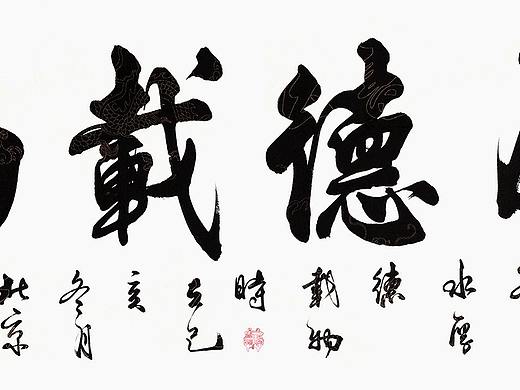 德載
水厚
德
載物
時
在己
亥
冬月
北京